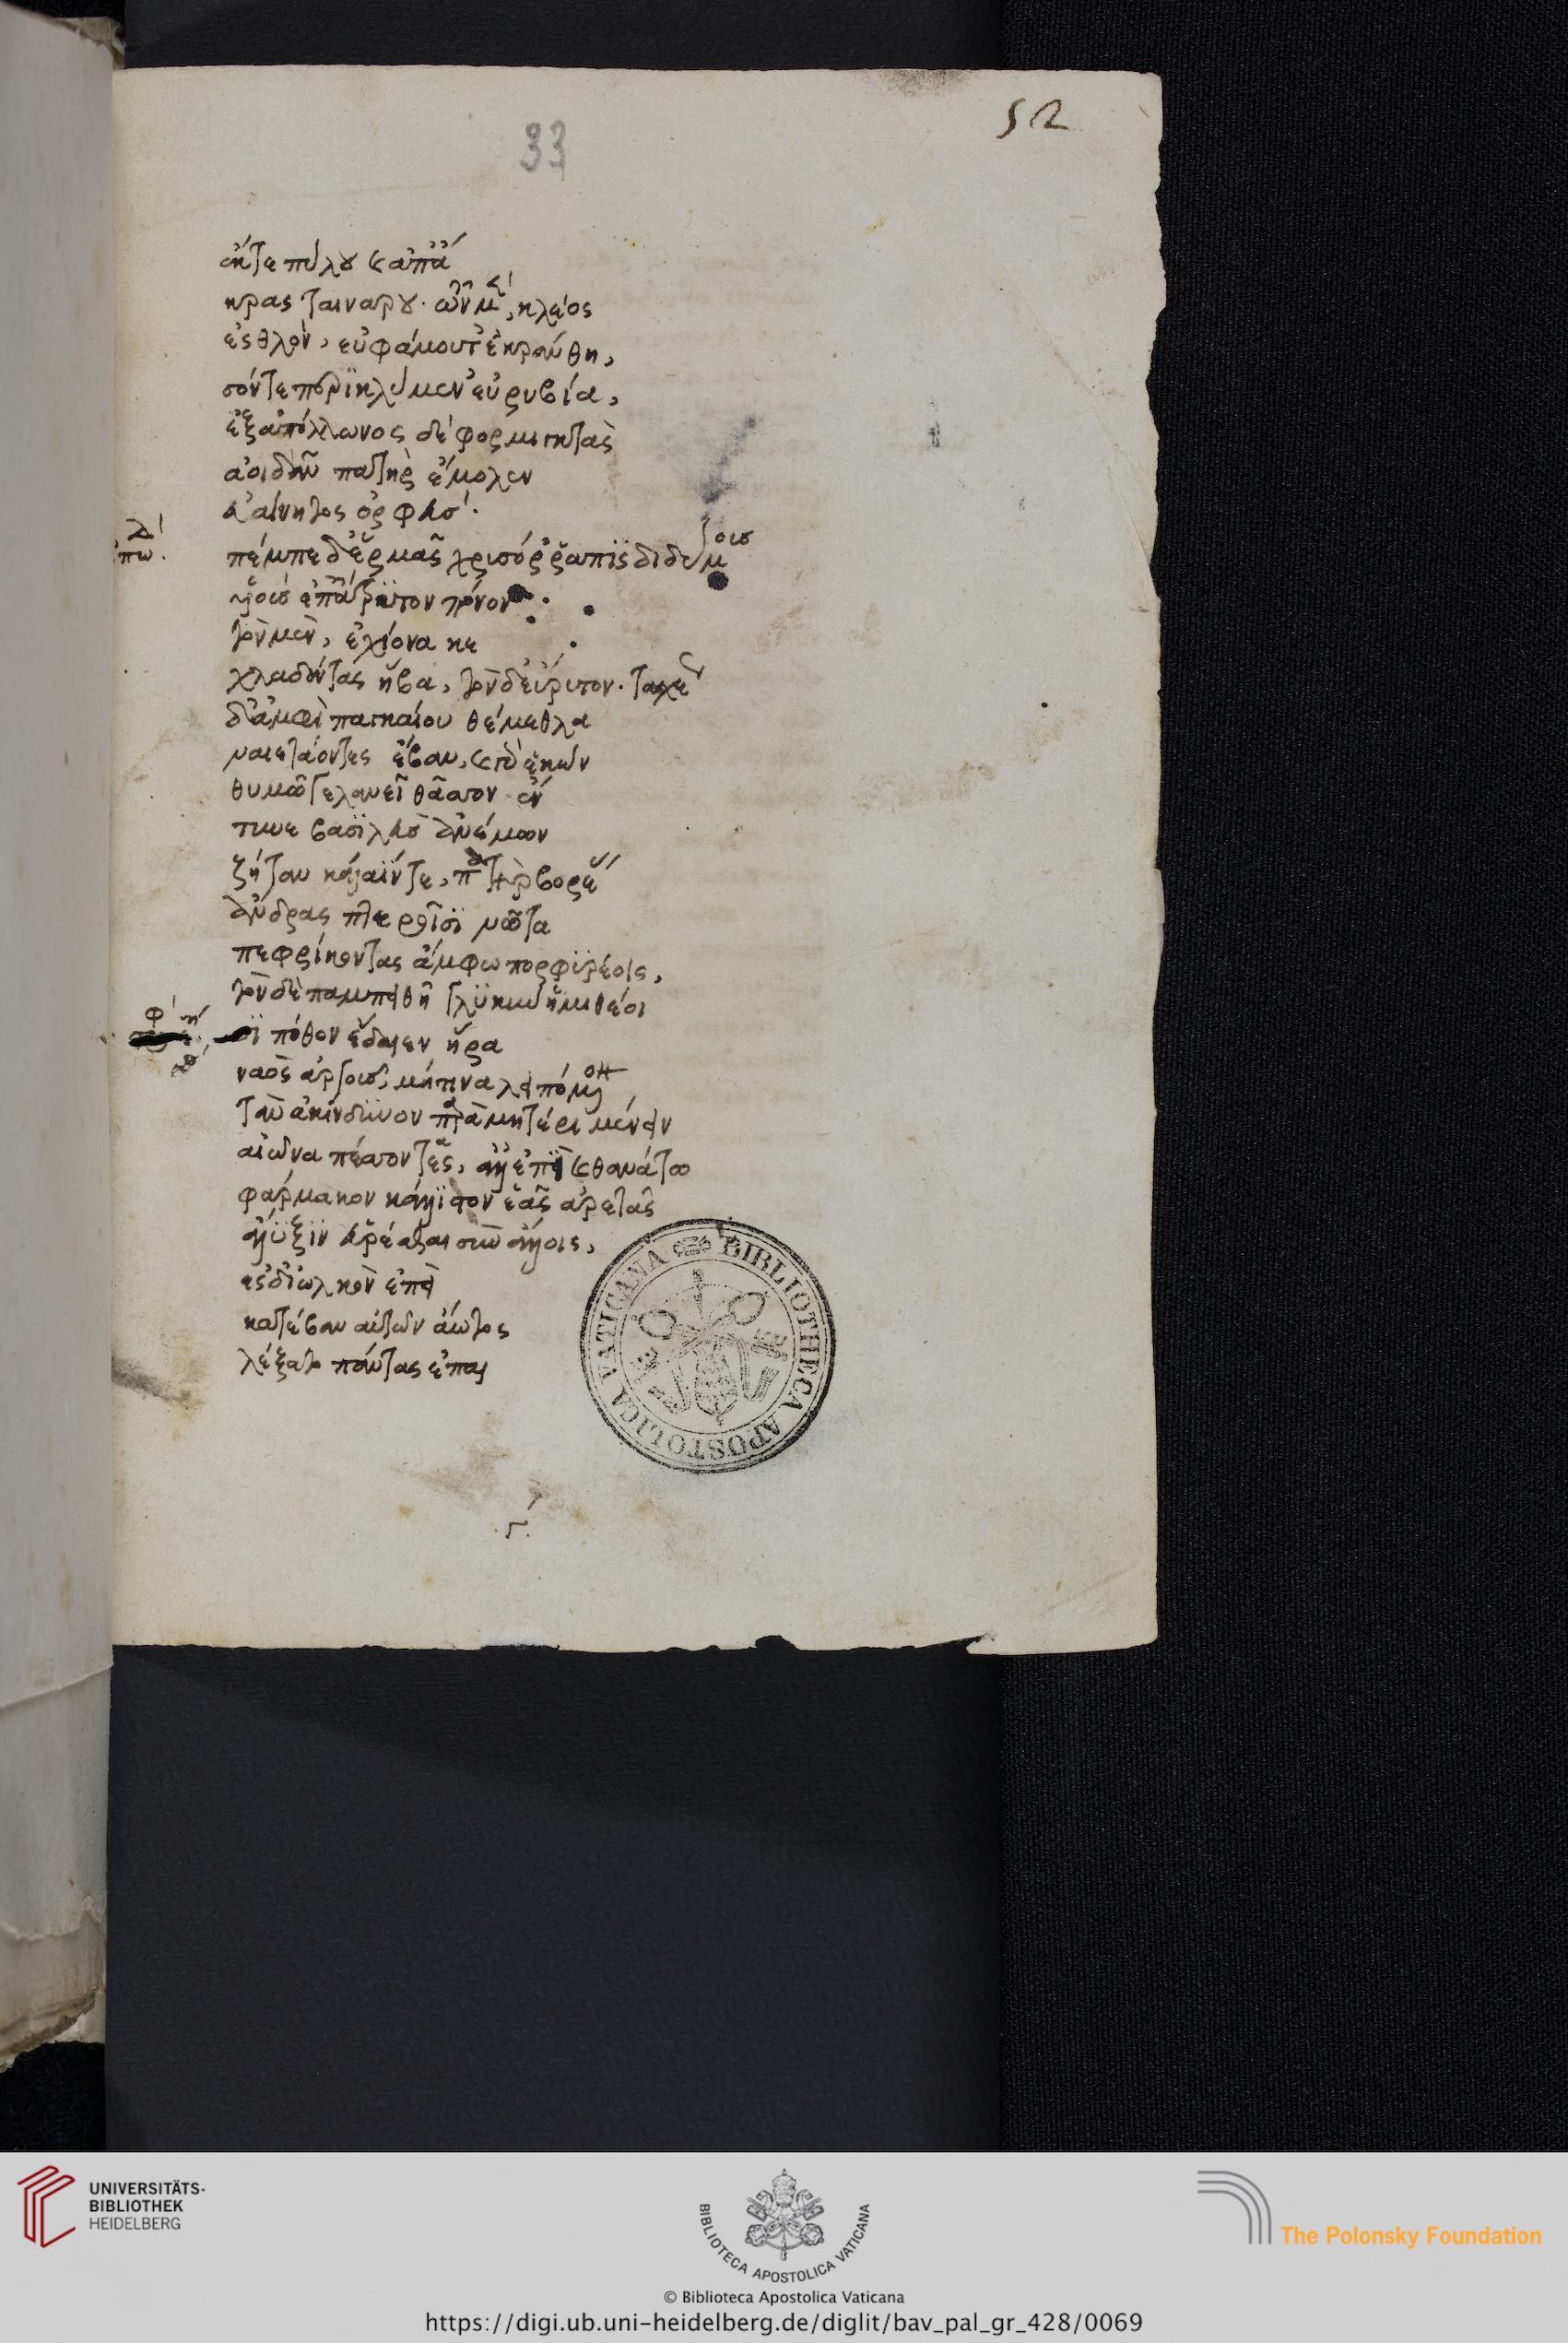 52
33
ἔκ τε πύλου καὶ ἀπ' ἄ
κρας ταινάρου· ὧν μὲν, κλέος
ἐσθλὸν, εὐφάμου τ' ἐκράνθη,
σόν τε περϊκλύμεν' εὐρυβία,
ἐξ ἀπόλλωνος δὲ φορμικτὰς
ἀοιδᾶν πατὴρ ἔμολεν
εὐαίνητος ὀρφεύσ·
ἐπῳ.
πέμπε δ' ἑρμᾶς χρισόῤῥαπϊς διδύμ
τὸν μὲν, ἐχίονα κε
χλαδόντας ἥβα, τὸν δ' εὔρυτον. ταχέ
δ' ἀμφὶ παγκαίου θέμεθλα
ναιετάοντες ἔβαν, καὶ γὰρ ἑκὼν
θυμῷ γελανεῖ θᾶσσον ἔν
τυνε βασϊλεὺσ ἀνέμων
ζήταν κάλαϊν τε, πατὴρ βορέ
ἄνδρας πτεροῖσϊ νῶτα
πεφρίκοντας ἄμφω πορφϋρέοις,
τὸν δὲ παμπειθῆ γλϋκὺν ἡμιθέοι
σϊ πόθον ἔδαιεν ἥρα
ναὸς ἀργοῦς, μή τινα λειπόμενον
τὰν ἀκίνδϋνον παρὰ ματέρι μένειν
αἰῶνα πέσσοντ
φάρμακον κάλλϊστον ἑᾶς ἀρετᾶς
ἅλϊξϊν εὑρέσθαι σὺν ἄλλοις,
ἐς δ' ἰωλκὸν ἐπεὶ
κατέβαν αὐτῶν ἄωτος
λέξατο πάντας ἐπαι
γ'
BIBLIOTHECA APOSTOLICA VATICANA
UNIVERSITÄTS-
BIBLIOTHEK
HEIDELBERG
BIBLIOTECA APOSTOLICA VATICANA
The Polonsky Foundation
© Biblioteca Apostolica Vaticana
https://digi.ub.uni-heidelberg.de/diglit/bav_pal_gr_428/0069